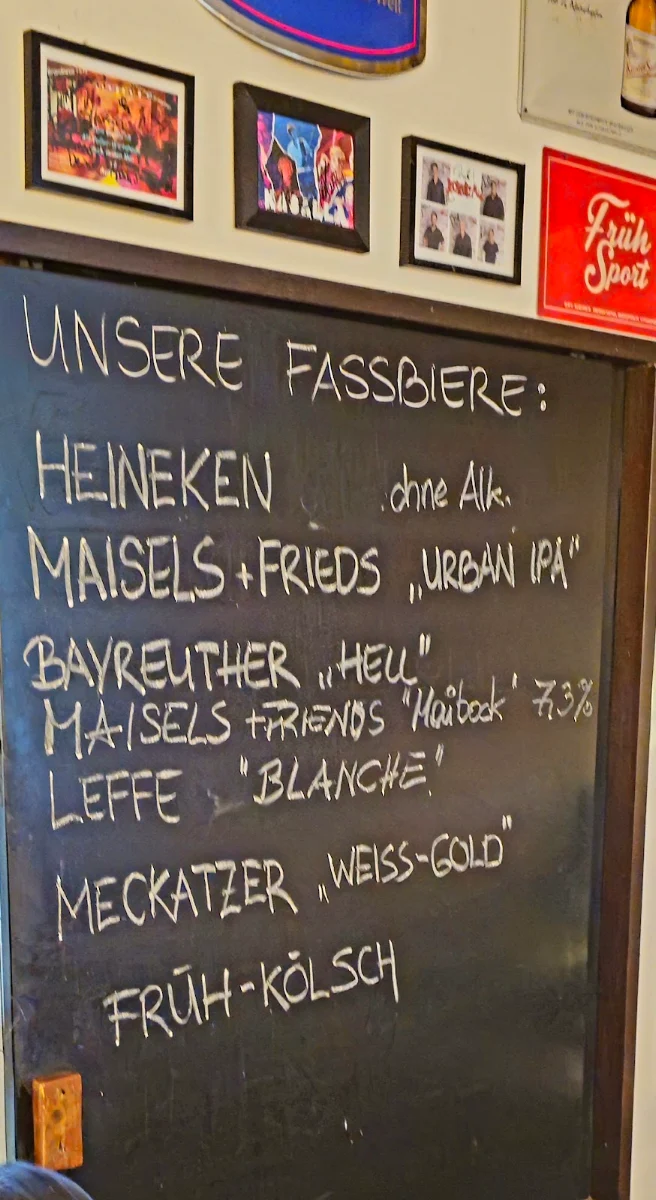 Früh
Sport
UNSERE FASSBIERE:
HEINEKEN ohne Alk.
MAISELS + FRIEDS „URBAN IPA"
BAYREUTHER „HELL"
MAISELS + FRIENDS "Maibock" 7,3%
LEFFE "BLANCHE"
MECKATZER „WEISS-GOLD"
FRÜH-KÖLSCH